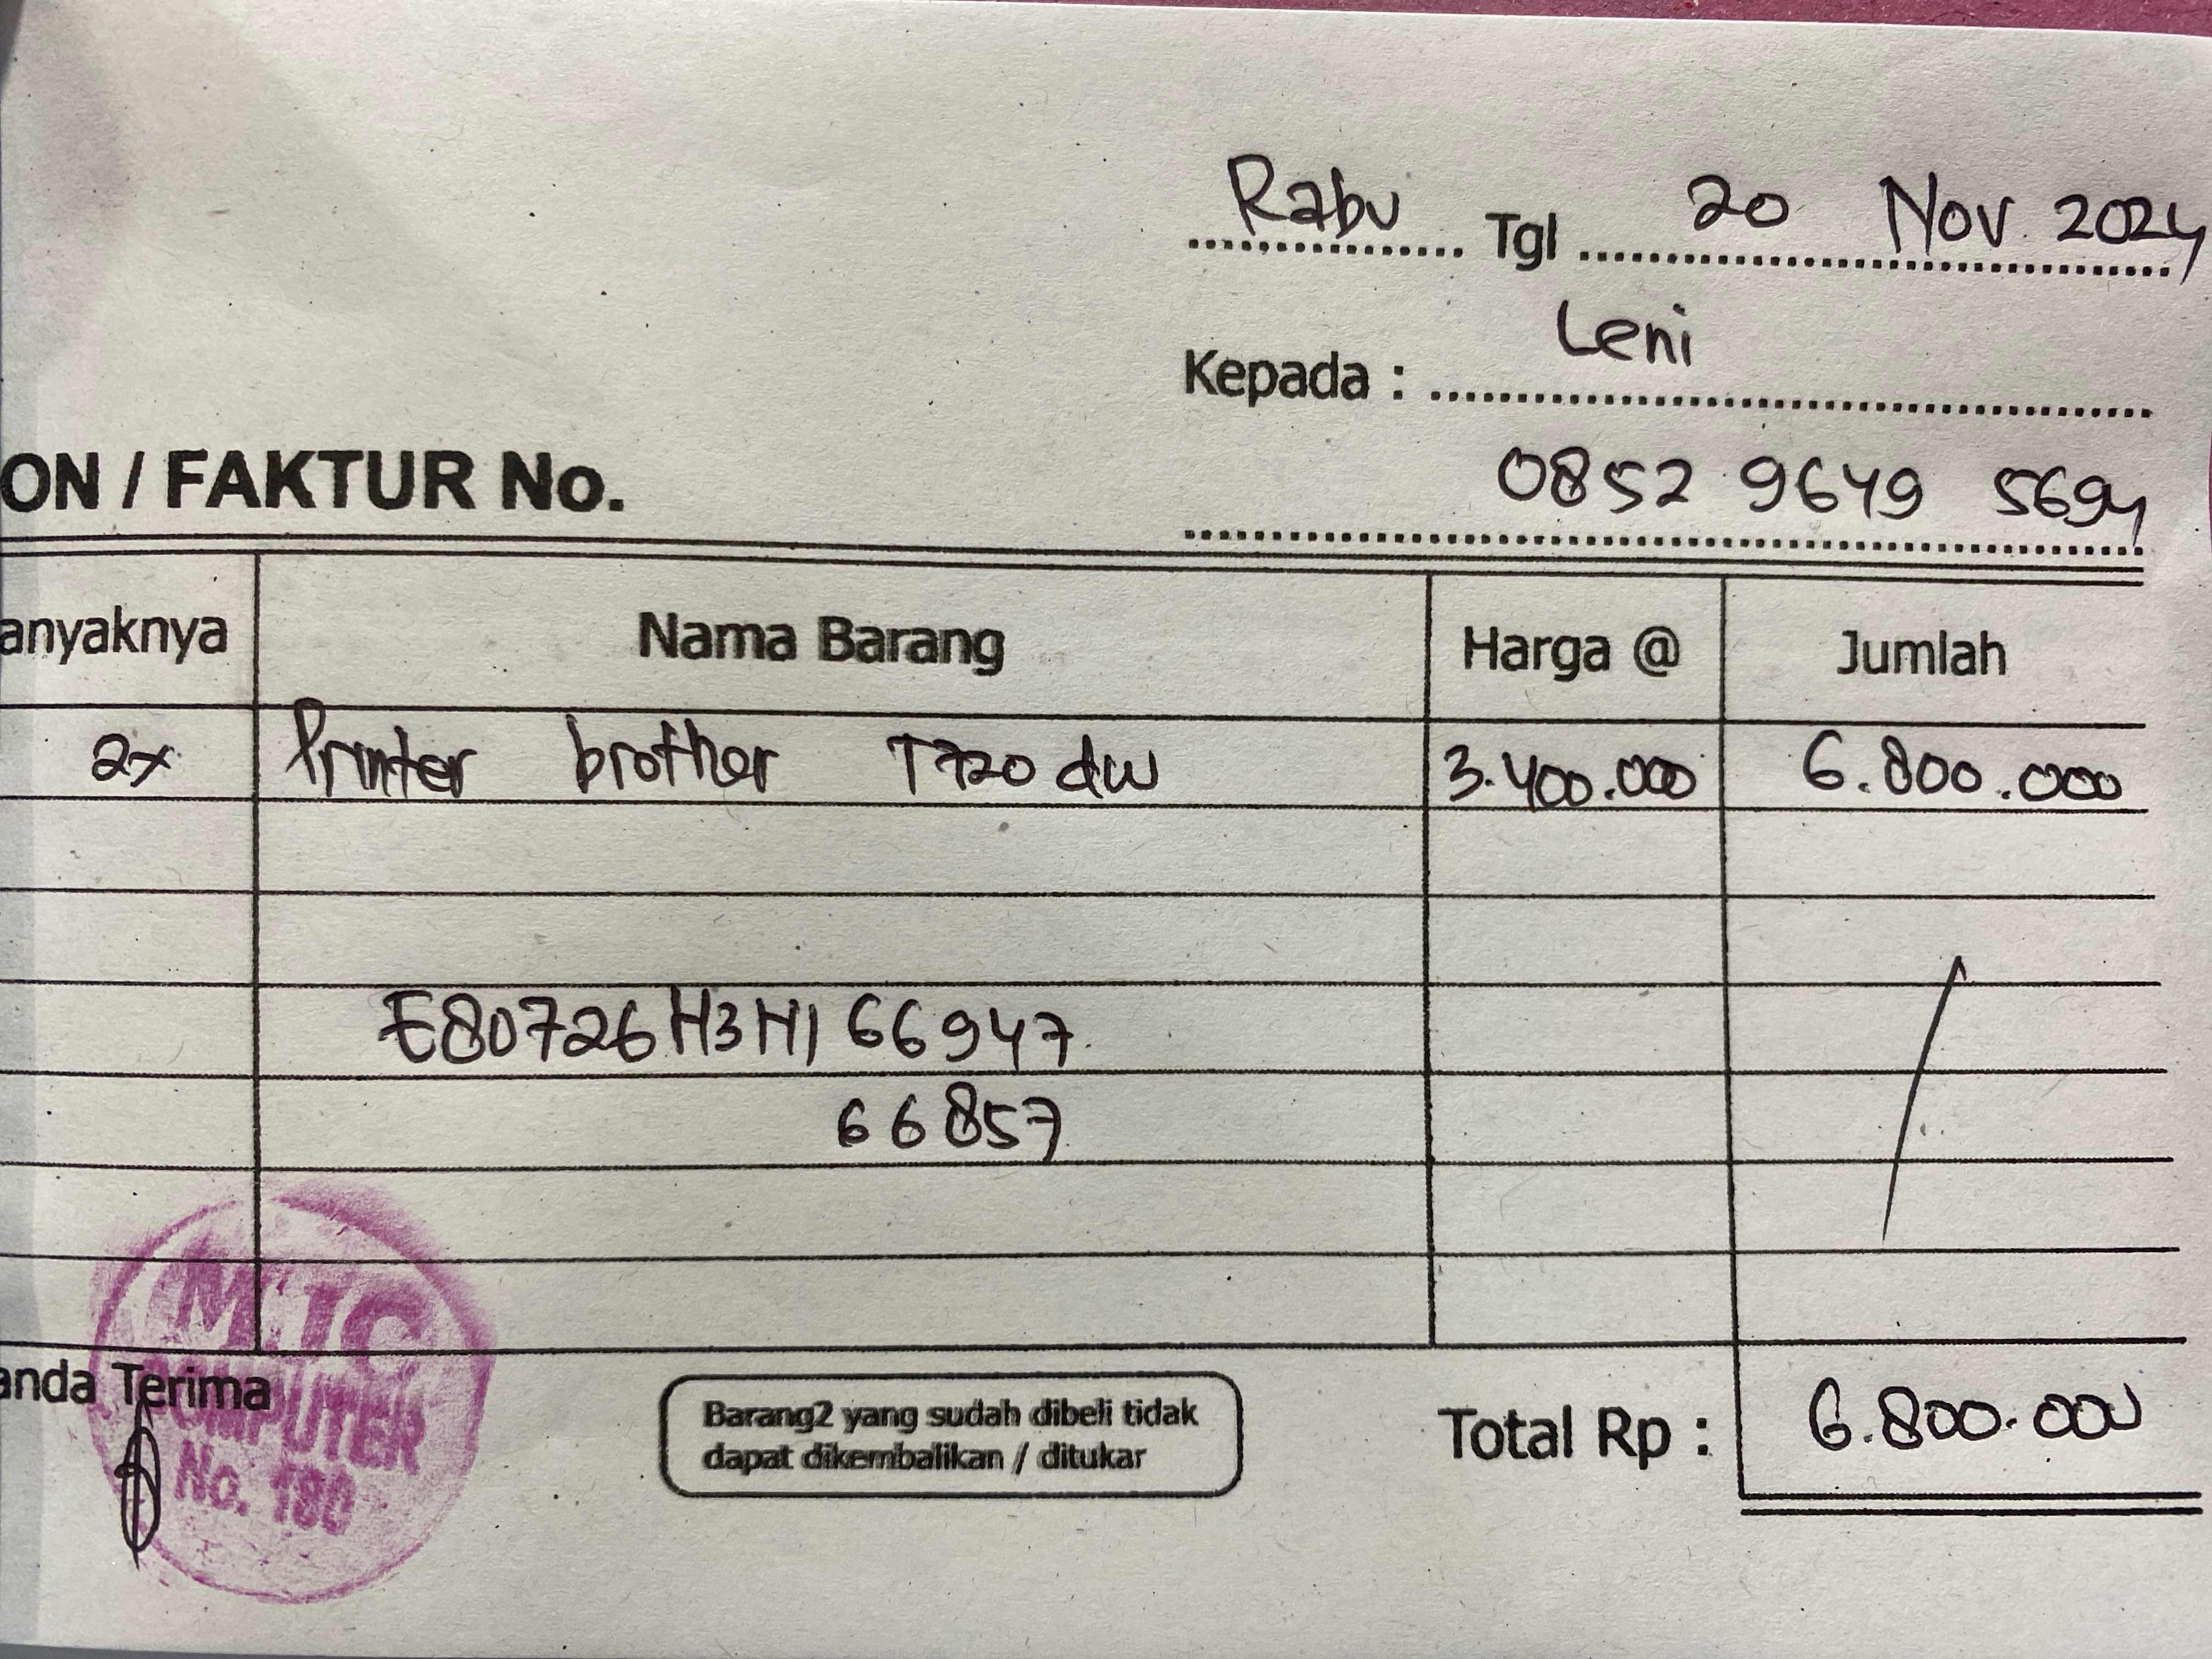 Rabu Tgl 20 Nov 2024
Kepada : Leni
ON / FAKTUR No.
0852 9649 5694
anyaknya Nama Barang Harga @ Jumlah
2x Printer brother T720 dw 3.400.000 6.800.000
E80726H3H166947
66857
anda Terima
M.JC
COMPUTER
No. 180
Barang2 yang sudah dibeli tidak
dapat dikembalikan / ditukar
Total Rp : 6.800.000